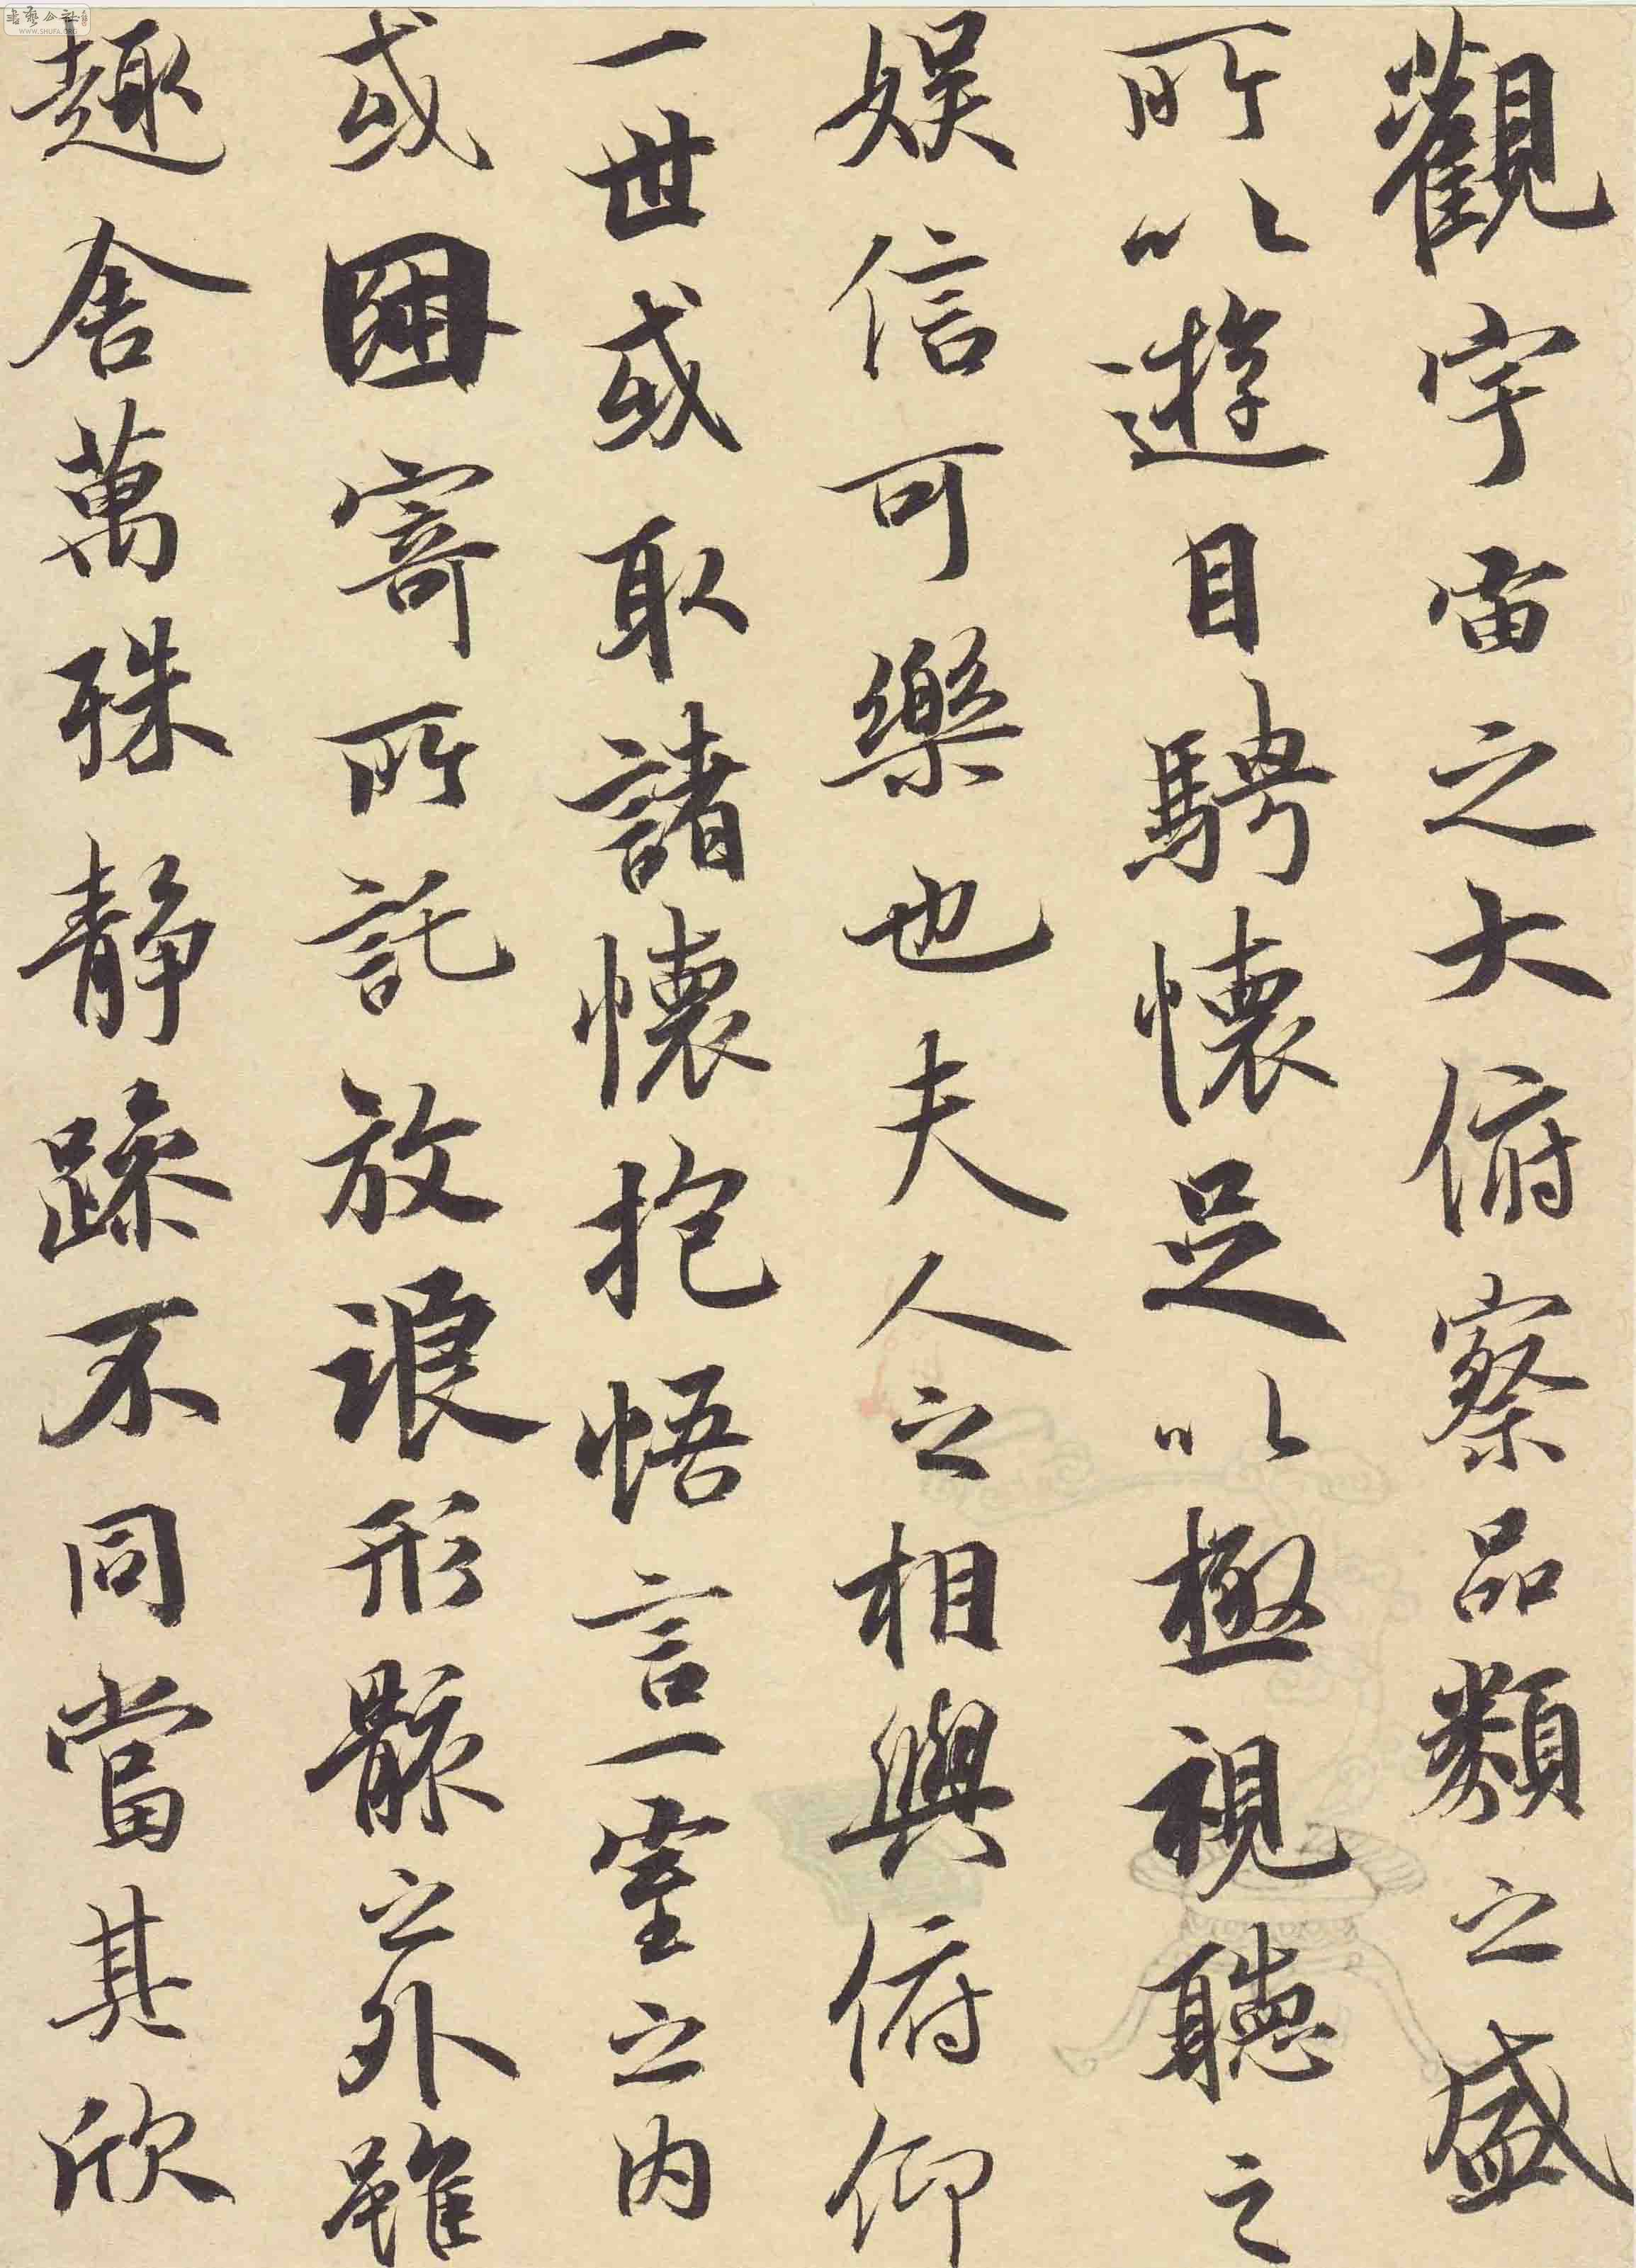 觀宇宙之大俯察品類之盛
所以遊目騁懷足以極視聽之
娛信可樂也夫人之相與俯仰
一世或取諸懷抱悟言一室之内
或因寄所託放浪形骸之外雖
趣舍萬殊静躁不同當其欣
WWW.SHUFA.ORG